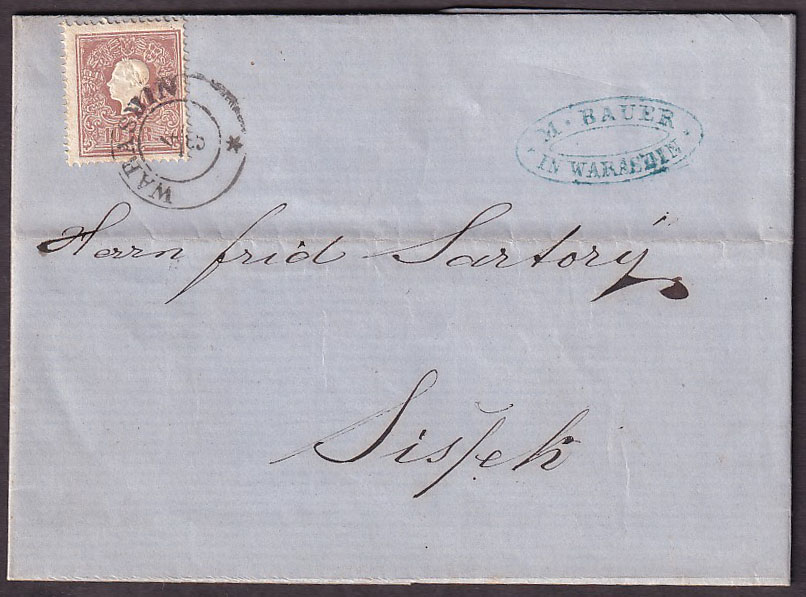 WARASDIN
M. BAUER
IN WARASDIN
Herrn frid Sartory
Sissek